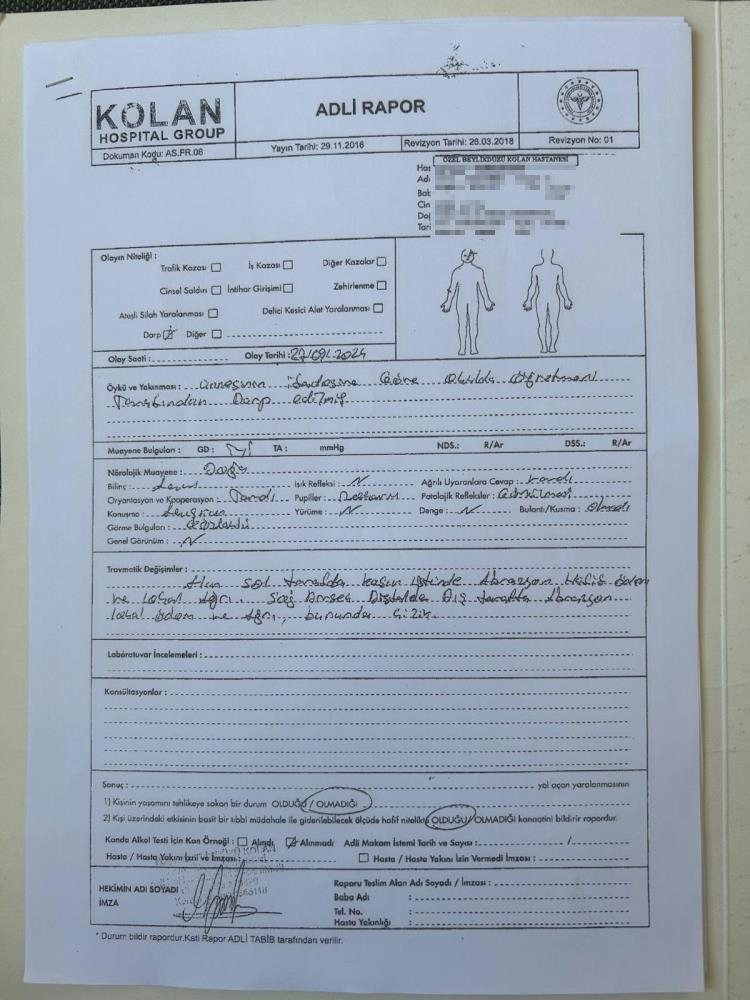 KOLAN
HOSPITAL GROUP
Dokuman Kodu: AS.FR.06
ADLİ RAPOR
Yayın Tarihi: 29.11.2016
Revizyon Tarihi: 26.03.2018
Revizyon No: 01
ÖZEL BEYLİKDÜZÜ KOLAN HASTANESİ
Has
Adı
Bab
Cin
Doğ
Tari
Olayın Niteliği :
Trafik Kazası İş Kazası Diğer Kazalar
Cinsel Saldırı İntihar Girişimi Zehirlenme
Ateşli Silah Yaralanması Delici Kesici Alet Yaralanması
Darp Diğer
Olay Saati : Olay Tarihi : 27/09/2024
Öykü ve Yakınması : Annesinin ifadesine Göre okulda öğretmeni
Tarafından Darp edilmiş
Muayene Bulguları : GD : TA : mmHg NDS.: R/Ar DSS.: R/Ar
Nörolojik Muayene : Doğal
Bilinç : Işık Refleksi : N Ağrılı Uyaranlara Cevap :
Oryantasyon ve Kooperasyon : Pupiller : Patolojik Refleksler :
Konuşma : Yürüme : N Denge : N Bulantı/Kusma : olmadı
Görme Bulguları :
Genel Görünüm : N
Travmatik Değişimler :
Alın sol tarafda kaşın üstünde Abrazyon Hafif ödem
ve lokal Ağrı, Sağ Dış tarafta Abrazyon
lokal ödem ve Ağrı, burunda çizik
Labaratuvar İncelemeleri :
Konsültasyonlar :
Sonuç : yol açan yaralanmasının
1) Kişinin yaşamını tehlikeye sokan bir durum OLDUĞU / OLMADIĞI
2) Kişi üzerindeki etkisinin basit bir tıbbi müdahale ile giderilebilecek ölçüde hafif nitelikte OLDUĞU / OLMADIĞI kanaatini bildirir rapordur.
Kanda Alkol Testi İçin Kan Örneği : Alındı Alınmadı Adli Makam İstemi Tarih ve Sayısı : /
Hasta / Hasta Yakını İzni ve İmzası : Hasta / Hasta Yakını İzin Vermedi İmzası :
HEKİMİN ADI SOYADI
İMZA
Raporu Teslim Alan Adı Soyadı / İmzası :
Baba Adı :
Tel. No. :
Hasta Yakınlığı :
* Durum bildir rapordur.Kati Rapor ADLİ TABİB tarafından verilir.